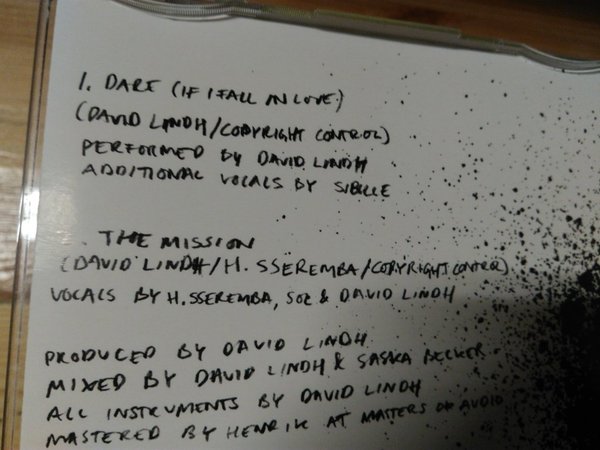 1. DARE (IF I FALL IN LOVE)
(DAVID LINDH/COPYRIGHT CONTROL)
PERFORMED BY DAVID LINDH
ADDITIONAL VOCALS BY SIBILLE
. THE MISSION
(DAVID LINDH/H. SSEREMBA/COPYRIGHT CONTROL)
VOCALS BY H. SSEREMBA, SOZ & DAVID LINDH
PRODUCED BY DAVID LINDH
MIXED BY DAVID LINDH & SASKA BECKER
ALL INSTRUMENTS BY DAVID LINDH
MASTERED BY HENRIK AT MATTERS OF AUDIO